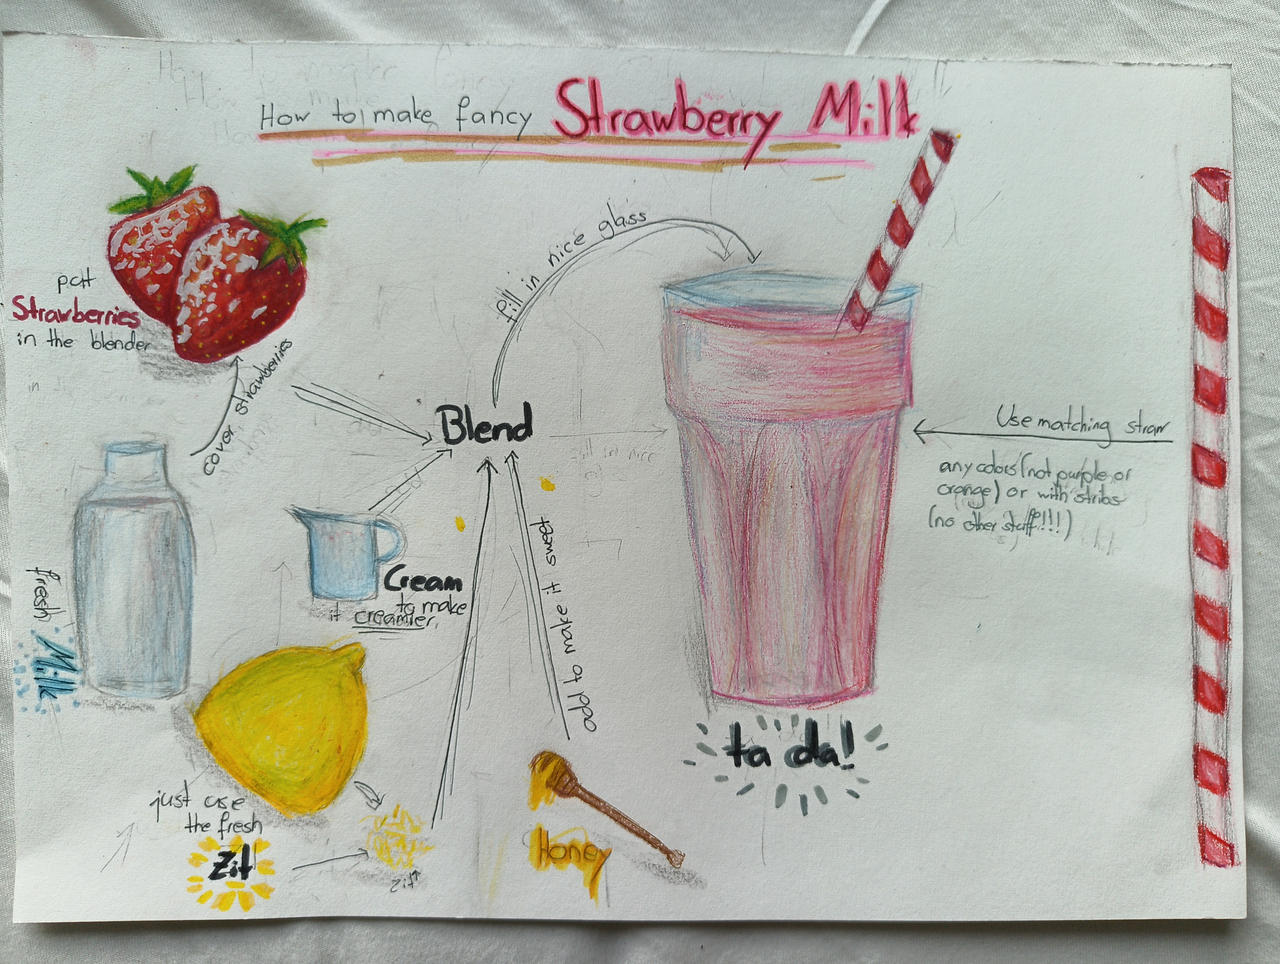 How to make fancy Strawberry Milk
put
Strawberries
in the blender
cover strawberries
fresh
Milk
Blend
fill in nice glass
Cream
to make
it creamier
add to make it sweet
Honey
just use
the fresh
Zit
zit
ta da!
Use matching straw
any colors (not purple or
orange) or with stribs
(no other stuff!!!)